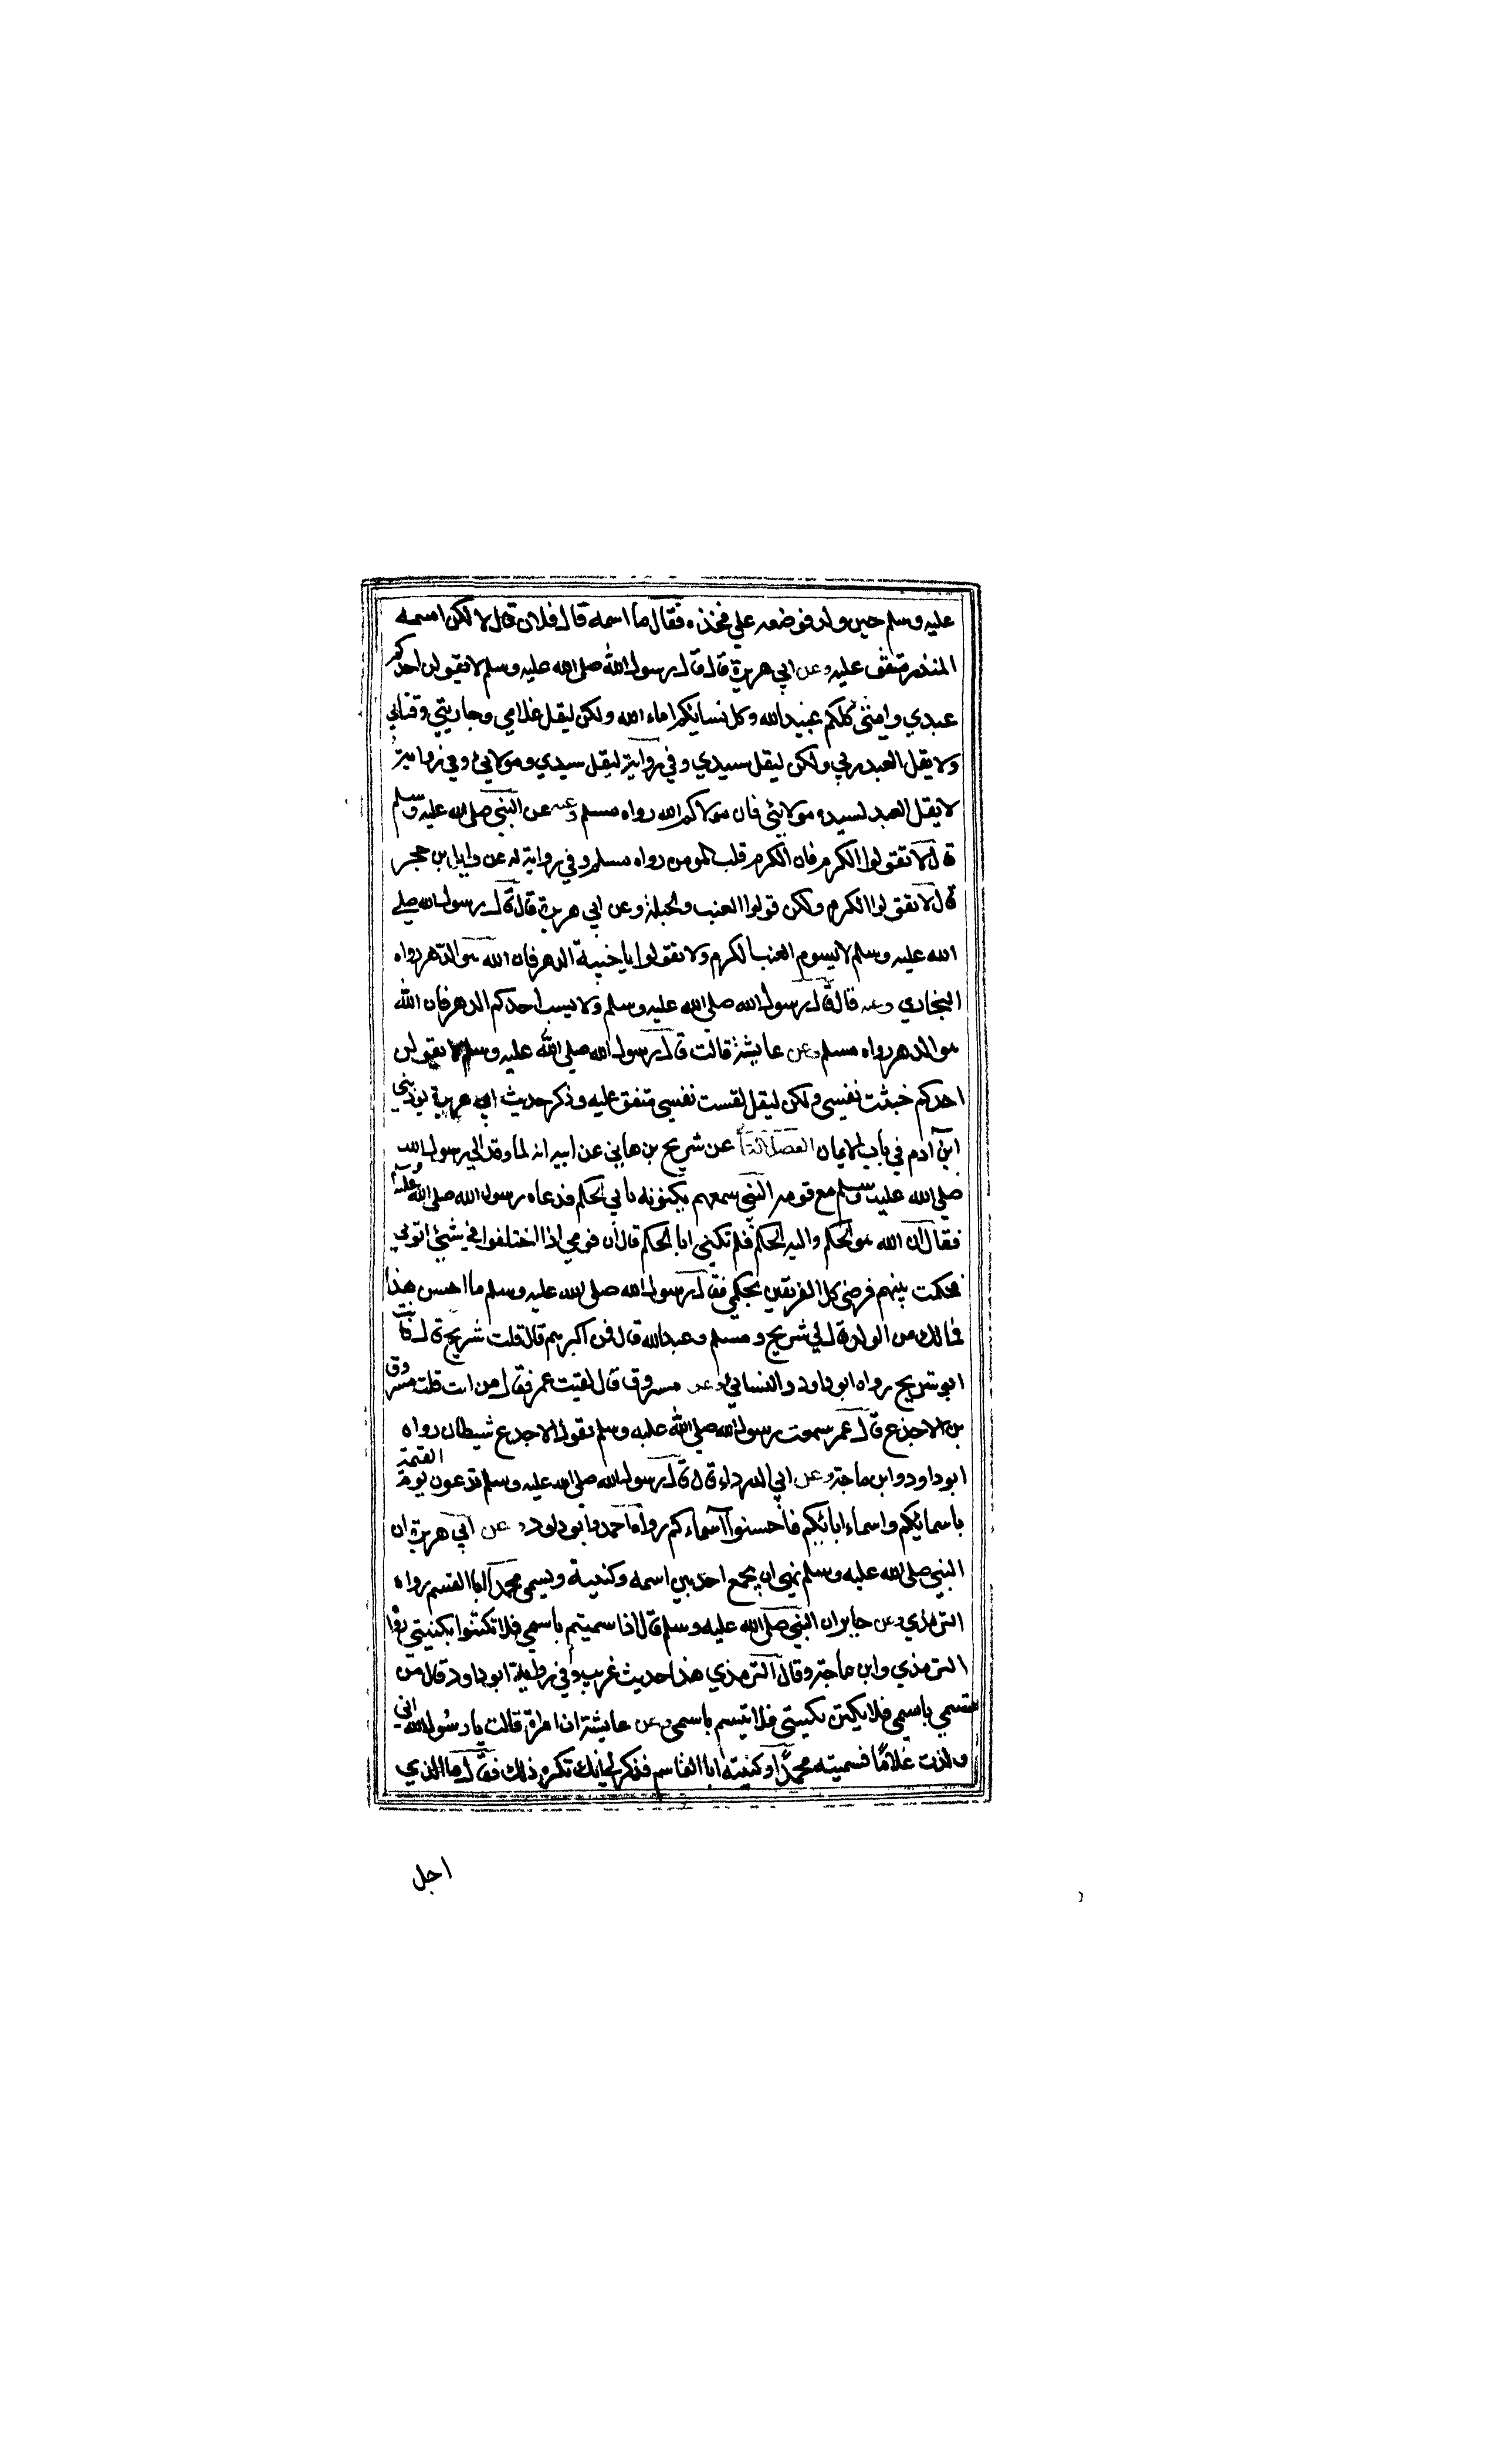 عليه وسلم حين ولد فوضعه علي فخذه فقال ما اسمه قال فلان قال لا لكن اسمه
المنذر متفق عليه وعن ابي هريرة قال قال رسول الله صلى الله عليه وسلم لا يقولن احدكم
عبدي وامتي كلكم عبيد الله وكل نسايكم اماء الله ولكن ليقل غلامي وجاريتي وفتاي
ولا يقل العبد ربي ولكن ليقل سيدي وفي رواية ليقل سيدي ومولاي وفي رواية
لا يقل العبد لسيده مولائي فان مولاكم الله رواه مسلم وعنه عن النبي صلى الله عليه وسلم
قال لا تقولوا الكرم فان الكرم قلب المومن رواه مسلم وفي رواية له عن وايل بن حجر
قال لا تقولوا الكرم ولكن قولوا العنب والحبلة وعن ابي هريرة قال قال رسول الله صلي
الله عليه وسلم لا تسموا العنب الكرم ولا تقولوا يا خيبة الدهر فان الله هو الدهر رواه
البخاري وعنه قال قال رسول الله صلى الله عليه وسلم ولا يسب احدكم الدهر فان الله
هو الدهر رواه مسلم وعن عايشة قالت قال رسول الله صلى الله عليه وسلم لا يقولن
احدكم خبثت نفسي ولكن ليقل لقست نفسي متفق عليه وذكر حديث ابي هريرة يوذيني
ابن آدم في باب الايمان الفصل الثاني عن شريح بن هاني عن ابيه انه لما وفد الي رسول الله
صلى الله عليه وسلم مع قومه النبي سمعهم يكنونه بابي الحكم فدعاه رسول الله صلى الله عليه وسلم
فقال ان الله هو الحكم واليه الحكم فلم تكني ابا الحكم قال ان قومي اذا اختلفوا في شيئ اتوني
فحكمت بينهم فرضي كل الفريقين بحكمي فقال رسول الله صلى الله عليه وسلم ما احسن هذا
فمالك من الولد قال لي شريح ومسلم وعبد الله قال فمن اكبرهم قال قلت شريح قال فانت
ابو شريح رواه ابو داود والنسائي وعن مسروق قال لقيت عمر فقال من انت قلت مسروق
بن الاجدع قال عمر سمعت رسول الله صلى الله عليه وسلم يقول الاجدع شيطان رواه
ابو داود وابن ماجة وعن ابي الدرداء قال قال رسول الله صلى الله عليه وسلم تدعون يوم القيمة
باسمائيكم واسماء ابائيكم فاحسنوا اسماءكم رواه احمد وابو داود وعن ابي هريرة ان
النبي صلى الله عليه وسلم نهى ان يجمع احد بين اسمه وكنيته ويسمى محمدا ابا القسم رواه
الترمذي وعن جابر ان النبي صلى الله عليه وسلم قال اذا سميتم باسمي فلا تكتنوا بكنيتي رواه
الترمذي وابن ماجة وقال الترمذي هذا حديث غريب وفي رواية ابو داود قال من
تسمي باسمي فلا يكتن بكنيتي فلا يتسم باسمي وعن عايشة ان امراة قالت يا رسول الله اني
ولدت غلاما فسميته محمدا وكنيته ابا القاسم فذكر لي انك تكره ذلك فقال ما الذي
احل